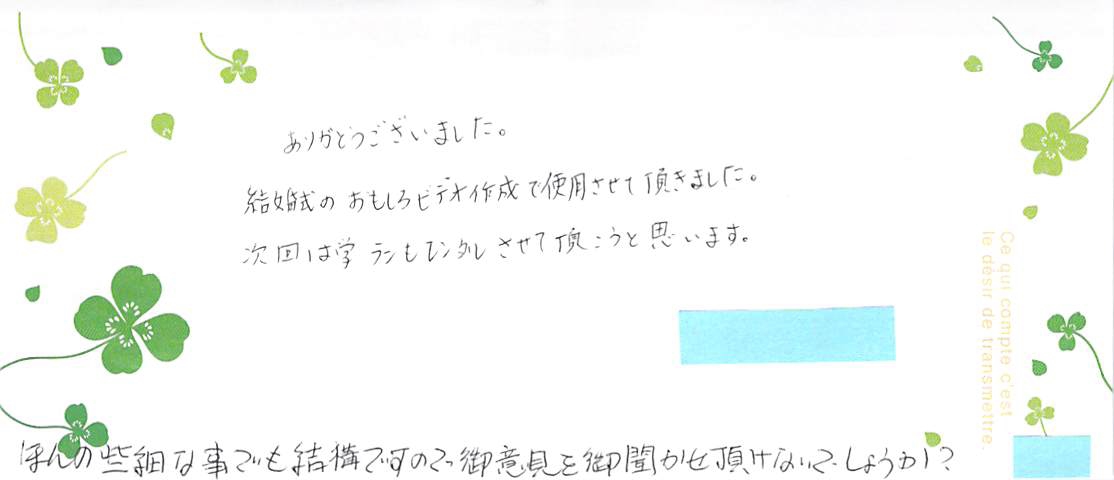 ありがとうございました。
結婚式の おもしろビデオ作成で使用させて頂きました。
次回は学ランもレンタルさせて頂こうと思います。
Ce qui compte c'est
le désir de transmettre.
ほんの些細な事でも結構ですので御意見を御聞かせ頂けないでしょうか?